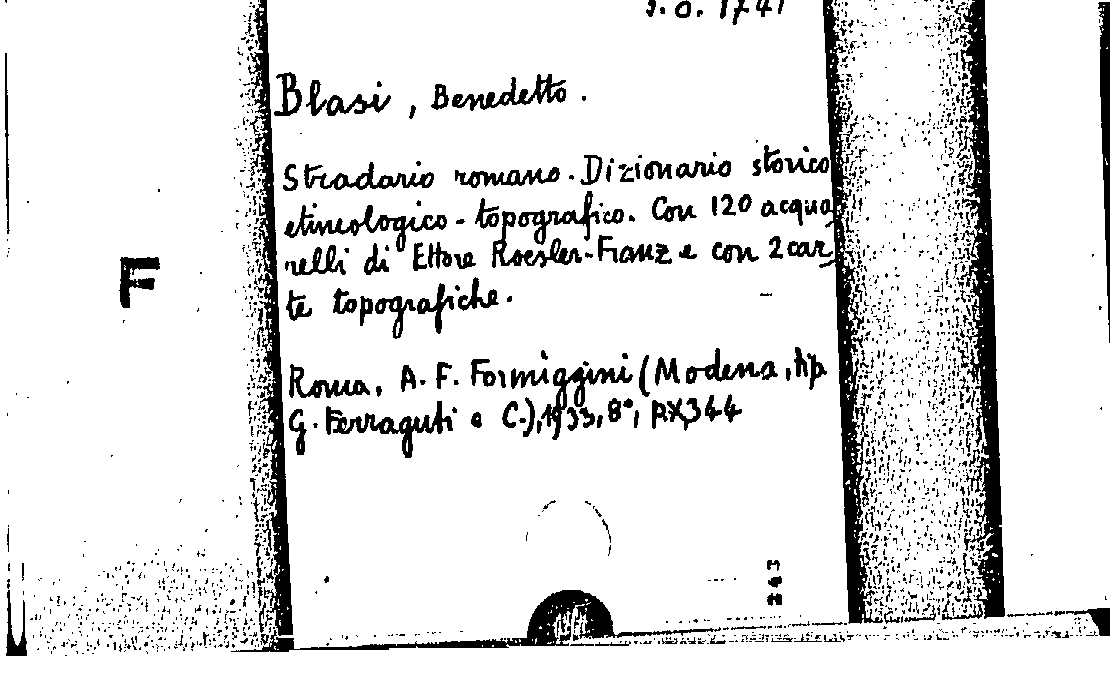 S. O. 1741
Blasi, Benedetto.
Stradario romano. Dizionario storico
etimologico - topografico. Con 120 acqua,
relli di Ettore Roesler-Franz e con 2 car,
te topografiche.
Roma, A. F. Formiggini (Modena, tip.
G. Ferraguti e C.), 1933, 8°, pX344
F